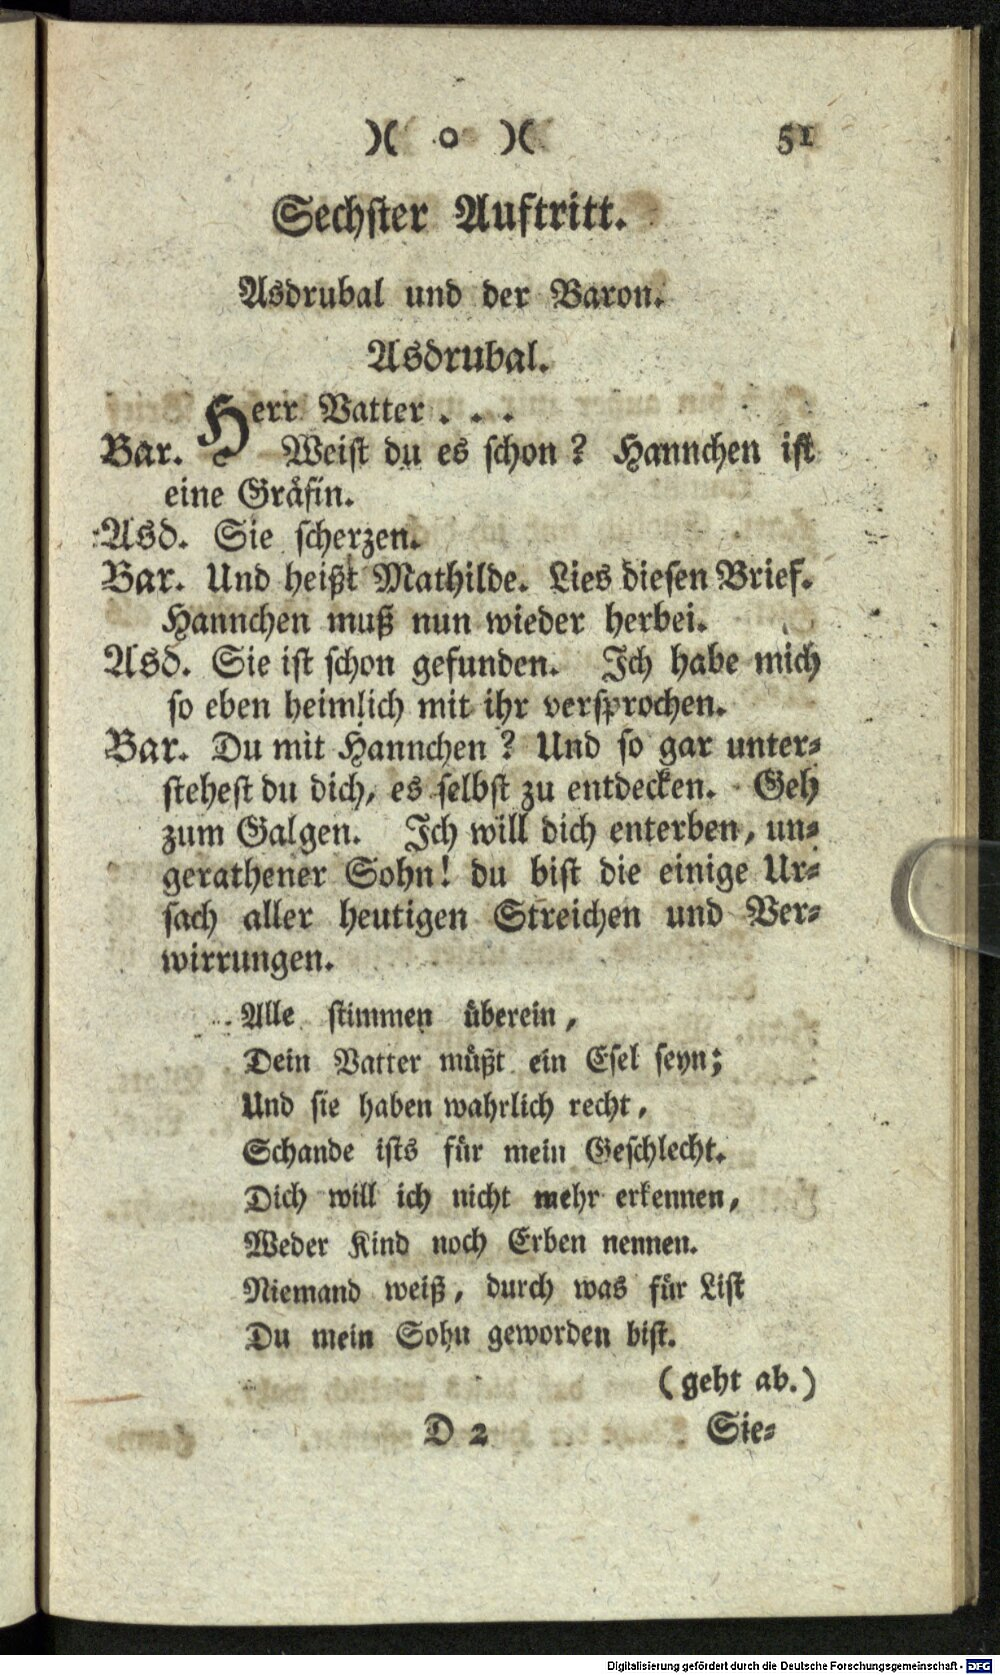 )( o )( 51
Sechster Auftritt.
Asdrubal und der Baron.
Asdrubal.
Herr Vatter . . .
Bar. Weist du es schon? Hannchen ist
eine Gräfin.
Asd. Sie scherzen.
Bar. Und heißt Mathilde. Lies diesen Brief.
Hannchen muß nun wieder herbei.
Asd. Sie ist schon gefunden. Ich habe mich
so eben heimlich mit ihr versprochen.
Bar. Du mit Hannchen? Und so gar unter-
stehest du dich, es selbst zu entdecken. Geh
zum Galgen. Ich will dich enterben, un-
gerathener Sohn! du bist die einige Ur-
sach aller heutigen Streichen und Ver-
wirrungen.
Alle stimmen überein,
Dein Vatter müßt ein Esel seyn;
Und sie haben wahrlich recht,
Schande ists für mein Geschlecht.
Dich will ich nicht mehr erkennen,
Weder Kind noch Erben nennen.
Niemand weiß, durch was für List
Du mein Sohn geworden bist.
(geht ab.)
D 2 Sie-
Digitalisierung gefördert durch die Deutsche Forschungsgemeinschaft - DFG